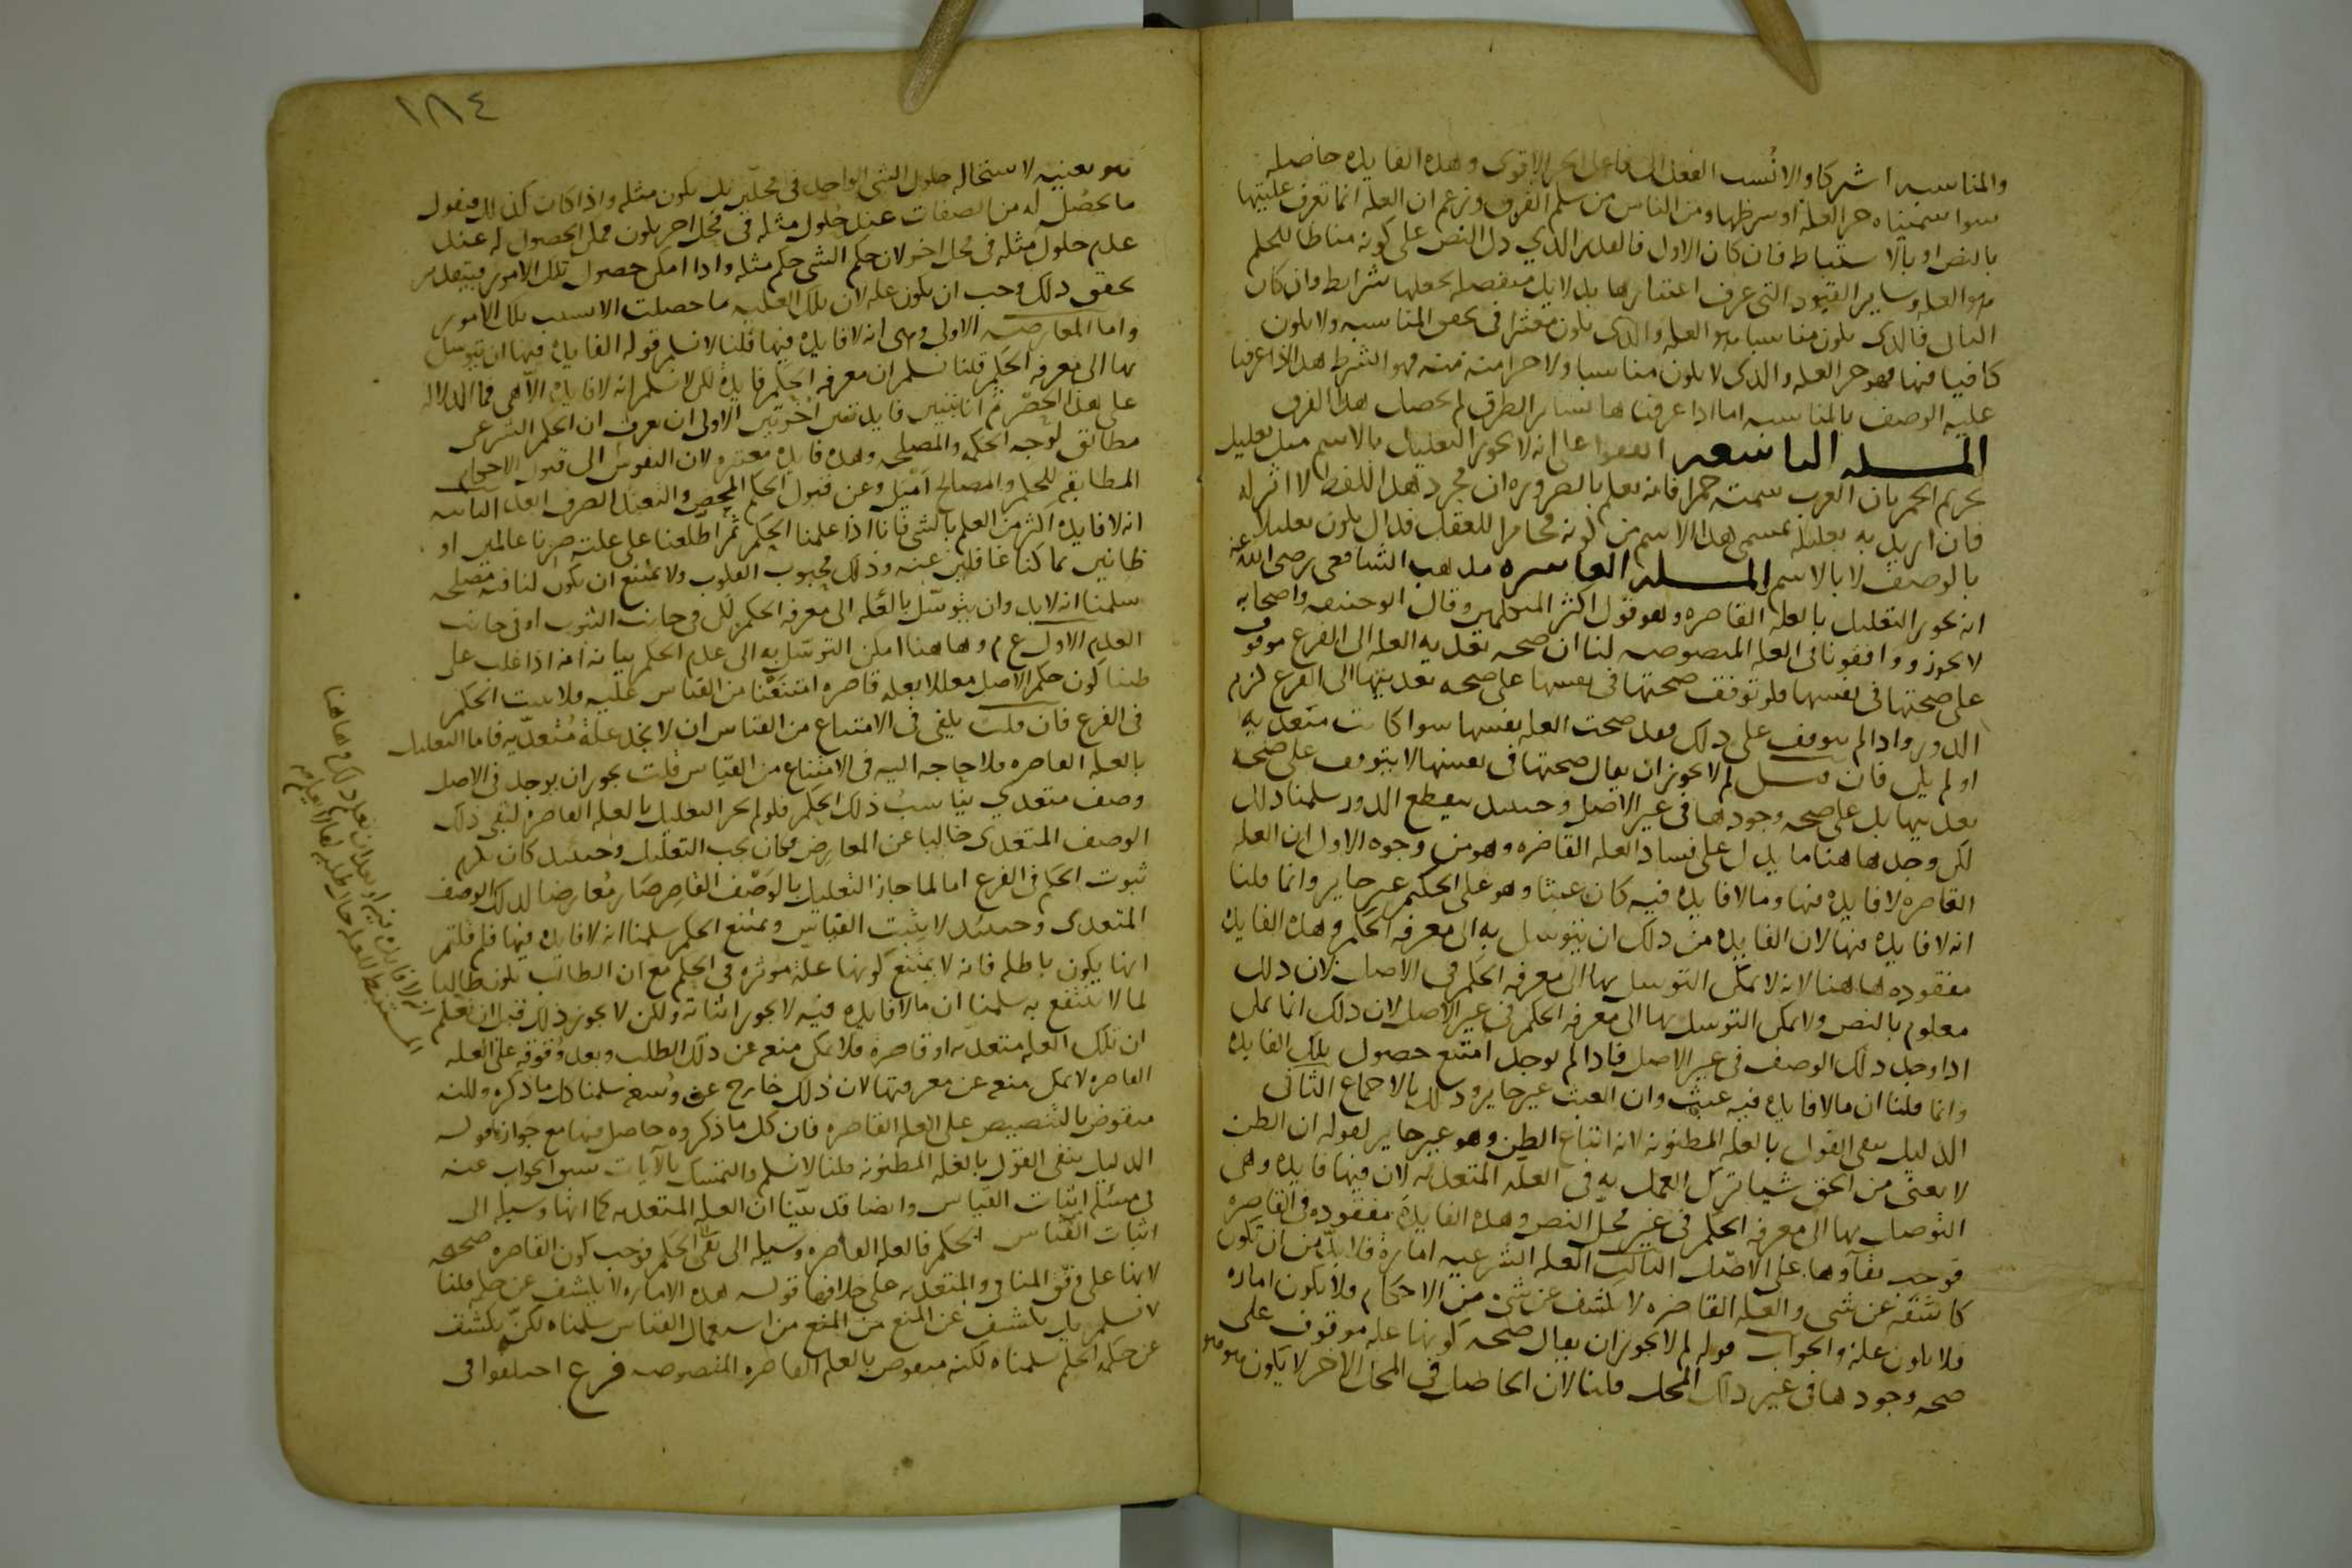 والمناسبه اشتركا والانسب الفعل الى فاعل الجزء الاقوى وهذه الفايده حاصله
سوا سميناه جزء العله او شرطها ومن الناس من سلم الفرق وزعم ان العله انما تعرف عليتها
بالنص او بالاستنباط فان كان الاول فالقدر الذي دل النص على كونه مناطا للحكم
هو العله وساير القيود التي عرف اعتبارها بدلايل منفصله نجعلها شرايط وان كان
الثاني فالذي يكون مناسبا هو العله والذي يكون معتبرا في تحقق المناسبه ولا يكون
كافيا فيها فهو جزء العله والذي لا يكون مناسبا ولا جزءا منه فهو الشرط هذا اذا عرفنا
عليه الوصف بالمناسبه اما اذا عرفناها بساير الطرق لم يحصل هذا الفرق
المسله التاسعه اتفقوا على انه لا يجوز التعليل بالاسم مثل تعليل
تحريم الخمر بان العرب سمته خمرا فانه نعلم بالضروره ان مجرد هذا اللفظ لا اثر له
فان اريد به تعليله بمسمى هذا الاسم من كونه مخامرا للعقل فذاك يكون تعليلا
بالوصف لا بالاسم المسله العاشره مذهب الشافعي رضي الله عنه
انه يجوز التعليل بالعله القاصره وهو قول اكثر المتكلمين وقال ابو حنيفه واصحابه
لا يجوز ووافقونا في العله المنصوصه لنا ان صحه تعديه العله الى الفرع موقوف
على صحتها في نفسها فلو توقف صحتها في نفسها على صحه تعديتها الى الفرع لزم
الدور واذا لم يتوقف على ذلك فقد صحت العله نفسها سوا كانت متعديه
او لم يكن فان قيل لم لا يجوز ان يقال صحتها في نفسها لا يتوقف على صحه
تعديها بل على صحه وجودها في غير الاصل وحينئذ ينقطع الدور سلمنا ذلك
لكن وجد هاهنا ما يدل على فساد العله القاصره وهو من وجوه الاول ان العله
القاصره لا فايده فيها وما لا فايده فيه كان عبثا وهو على الحكيم غير جايز وانما قلنا
انه لا فايده فيها لان الفايده من ذلك ان يتوسل به الى معرفه الحكم وهذه الفايده
مفقوده هاهنا لانه لا يمكن التوسل بها الى معرفه الحكم في الاصل لان ذلك
معلوم بالنص ولا يمكن التوسل بها الى معرفه الحكم في غير الاصل لان ذلك انما يمكن
اذا وجد ذلك الوصف في غير الاصل فاذا لم يوجد امتنع حصول تلك الفايده
وانما قلنا ان ما لا فايده فيه عبث وان العبث غير جايز وذلك بالاجماع الثاني
الدليل ينفي القول بالعله المظنونه لانه اتباع الظن وهو غير جايز لقوله ان الظن
لا يغني من الحق شيا ترك العمل به في العله المتعديه لان فيها فايده وهي
التوصل بها الى معرفه الحكم في غير محل النص وهذه الفايده مفقوده في القاصره
فوجب بقاوها على الاصل الثالث العله الشرعيه اماره فلا بد من ان تكون
كاشفه عن شي والعله القاصره لا تكشف عن شي من الاحكام فلا يكون اماره
فلا يكون عله والجواب قوله لم لا يجوز ان يقال صحه كونها عله موقوف على
صحه وجودها في غير ذلك المحل قلنا لان الحاصل في المحل الاخر لا يكون هو هو
١٨٤
هو بعينه لاستحاله حلول الشي الواحد في محلين بل يكون مثله واذا كان كذلك فنقول
ما يحصل له من الصفات عند حلول مثله في محل اخر يكون ممكن الحصول له عند
عدم حلول مثله في محل اخر لان حكم الشي حكم مثله واذا امكن حصول تلك الامور فبتقدير
تحقق ذلك وجب ان يكون عله لان تلك العليه ما حصلت الا بسبب تلك الامور
واما المعارضه الاولى وهي انه لا فايده فيها قلنا لا نسلم قوله الفايده فيها ان يتوسل
بها الى معرفه الحكم قلنا نسلم ان معرفه الحكم فايده لكن لا نسلم انه لا فايده الا هي فما الدلاله
على هذا الحصر ثم انا نبين فايدتين اخرتين الاولى ان نعرف ان الحكم الشرعي
مطابق لوجه الحكمه والمصلحه وهذه فايده معتبره لان النفوس الى قبول الاحكام
المطابقه للحكم والمصالح اميل وعن قبول الحكم المحض والتعبد الصرف ابعد الثانيه
انه لا فايده اكثر من العلم بالشي فانا اذا علمنا الحكم ثم اطلعنا على علته صرنا عالمين او
ظانين بما كنا غافلين عنه وذلك محبوب القلوب ولا يمتنع ان يكون لنا فيه مصلحه
سلمنا انه لا بد وان يتوسل بالعله الى معرفه الحكم لكن في جانب الثبوت او في جانب
العدم الاول ع م وهاهنا امكن التوسل به الى عدم الحكم بيانه انه اذا غلب على
ظننا كون حكم الاصل معللا بعله قاصره امتنعنا من القياس عليه فلا يثبت الحكم
في الفرع فان قلت يكفي في الامتناع من القياس ان لا يجد عله متعديه فاما التعليل
بالعله القاصره فلا حاجه اليه في الامتناع من القياس قلت يجوز ان يوجد في الاصل
وصف متعدي يناسب ذلك الحكم فلو لم يجز التعليل بالعله القاصره لبقي ذلك
الوصف المتعدي خاليا عن المعارض فكان يجب التعليل وحينئذ كان يلزم
ثبوت الحكم في الفرع اما لما جاز التعليل بالوصف القاصر صار معارضا لذلك الوصف
المتعدي وحينئذ لا يثبت القياس ويمتنع الحكم سلمنا انه لا فايده فيها فلم قلتم
انها يكون باطله فانه لا يمتنع كونها عله موثره في الحكم مع ان الطالب يكون طالبا
لما لا ينتفع به سلمنا ان ما لا فايده فيه لا يجوز اثباته ولكن لا يجوز ذلك قبل ان يعلم
ان تلك العله متعديه او قاصره فلا يمكن منعه عن ذلك الطلب وبعد وقوفه على العله
القاصره لا يمكن منعه عن معرفتها لان ذلك خارج عن وسعه سلمنا كل ما ذكره ولكنه
منقوض بالتنصيص على العله القاصره فان كل ما ذكروه حاصل فيها مع جوازها قوله
الدليل ينفي القول بالعله المظنونه قلنا لا نسلم والتمسك بالايات سبق الجواب عنه
في مسئله اثبات القياس وايضا قد بينا ان العله المتعديه كما انها وسيله الى
اثبات القياس الحكم فالعله القاصره وسيله الى نفي الحكم فوجب كون القاصره صحيحه
لانها على وفق المنافي والمتعديه على خلافها قوله هذه الاماره لا يكشف عن حكم قلنا
لا نسلم بل يكشف عن المنع من المنع من استعمال القياس سلمناه لكن يكشف
عن حكمه الحكم سلمناه لكنه منقوض بالعله القاصره المنصوصه فرع اختلفوا في
انه لا فايده فيه او بعد ان نعلم ذلك وهاهنا
المستنبط للعله حال طلبه لها لا يعلم انه